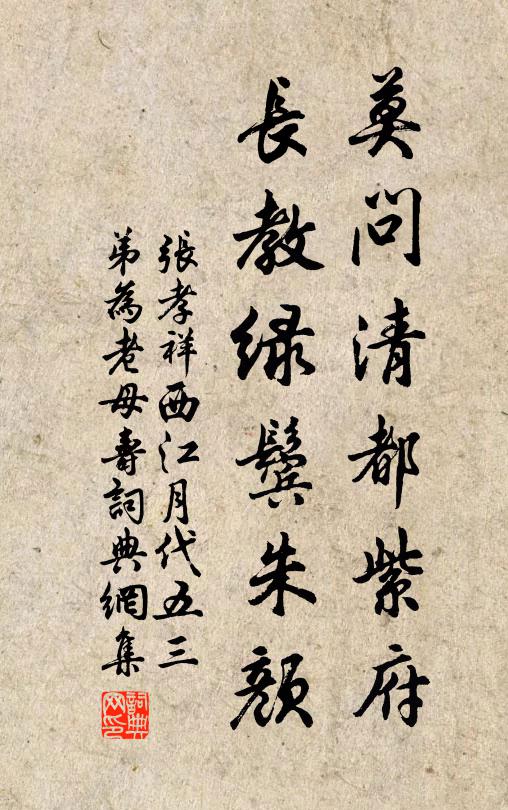 莫問清都紫府
長教緑鬢朱顔
張孝祥西江月代五三
弟為老母壽詞典網集
詞典网印